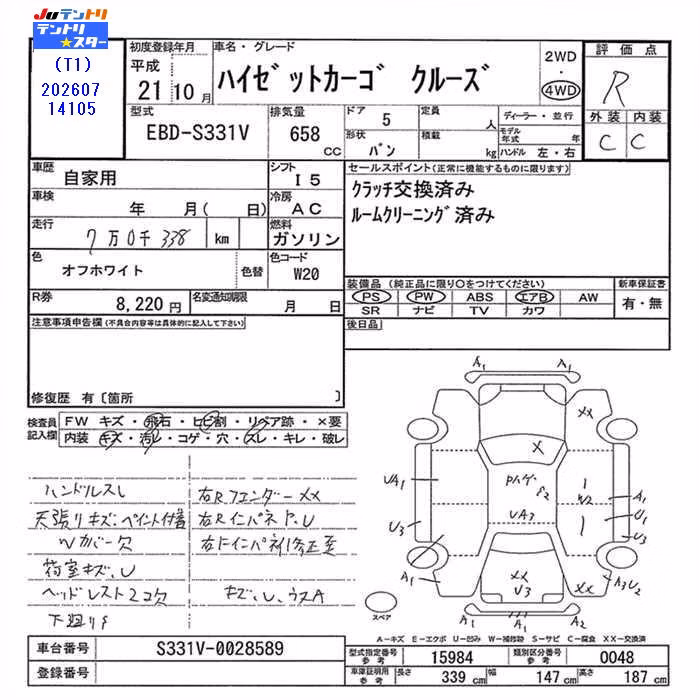 JUテントリ
テントリ
★スター
(T1)
202607
14105
初度登録年月
平成
21 10月
車名・グレード
ハイゼットカーゴ クルーズ
2WD
・
4WD
評価点
R
外装 内装
C C
型式
EBD-S331V
排気量
658
CC
ドア
5
定員
人
形状
バン
積載
kg
ディーラー・並行
モデル年式
年
ハンドル 左・右
車歴
自家用
シフト
I5
車検
年 月( 日)
冷房
AC
走行
7万0千338 km
燃料
ガソリン
色
オフホワイト
色替
色コード
W20
R券
8,220円
名変通知期限
月 日
セールスポイント(正常に機能するものに限ります)
クラッチ交換済み
ルームクリーニング済み
装備品(純正品に限り○をつけてください)
PS PW ABS エアB AW
SR ナビ TV カワ
新車保証書
有・無
後日品
注意事項申告欄(不具合内容等は具体的に記入して下さい)
修復歴 有〔箇所 〕
検査員
記入欄
FW キズ・飛石・ヒビ割・リペア跡・×要
内装 キズ・汚レ・コゲ・穴・スレ・キレ・破レ
ハンドルスレ
天張りキズ・ペイント付着
Wカバー欠
荷室キズ、U
ヘッドレスト2コ欠
下廻りS
右Rフエンダー××
右RインパネP、U
キズ、U、ウスA
A1 A1
××
×
UA1
Pハゲ
P2
W2
A1
U1
U3
UA3
U3
A1
××
U3
××
A3U2
A1 A1 A2
スペア
A―キズ E―エクボ U―凹み W―補修跡 S―サビ C―腐食 XX―交換済
車台番号
S331V-0028589
登録番号
型式指定番号
参考
15984
類別区分番号
参考
0048
車庫証明用
参考
長さ
339 cm
幅
147 cm
高さ
187 cm